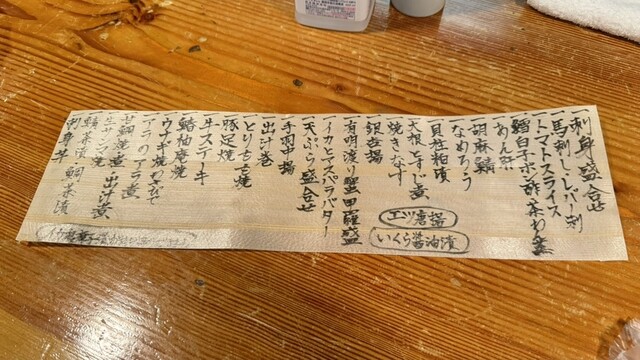 一刺身盛合せ
一馬刺し・レバー刺
一トマトスライス
一鱈白子ポン酢 茶わん蒸
一あん肝
一胡麻鯖
一なめろう
一貝柱粕漬
一大根と牛すじ煮
一焼きなす
一銀杏揚
一有明渡り蟹甲羅盛
一イカとアスパラバター
一天ぷら盛合せ
一手羽中揚
一出汁巻
一とりもも焼
一豚足焼
一牛ステーキ
一鰆柚庵焼
一ウナギ焼わさび
一アラのアラ煮
一甘鯛焼
一生サンマ焼
一鯖茶漬 鯛茶漬
刺身丼
エツ唐揚
いくら醤油漬